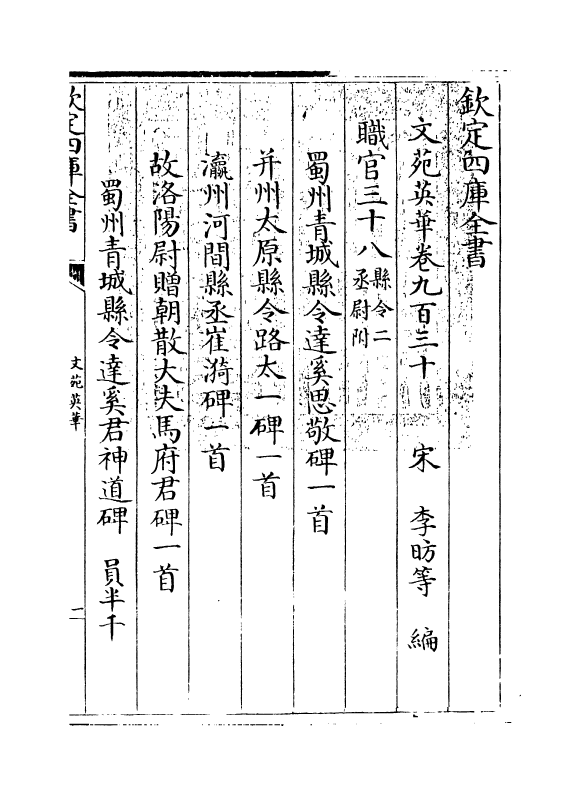 欽定四庫全書
文苑英華卷九百三十　宋　李昉等　編
職官三十八縣令二丞尉附
蜀州青城縣令達奚思敬碑一首
并州太原縣令路太一碑一首
瀛州河間縣丞崔漪碑一首
故洛陽尉贈朝散大夫馬府君碑一首
蜀州青城縣令達奚君神道碑　員半千
欽定四庫全書
文苑英華